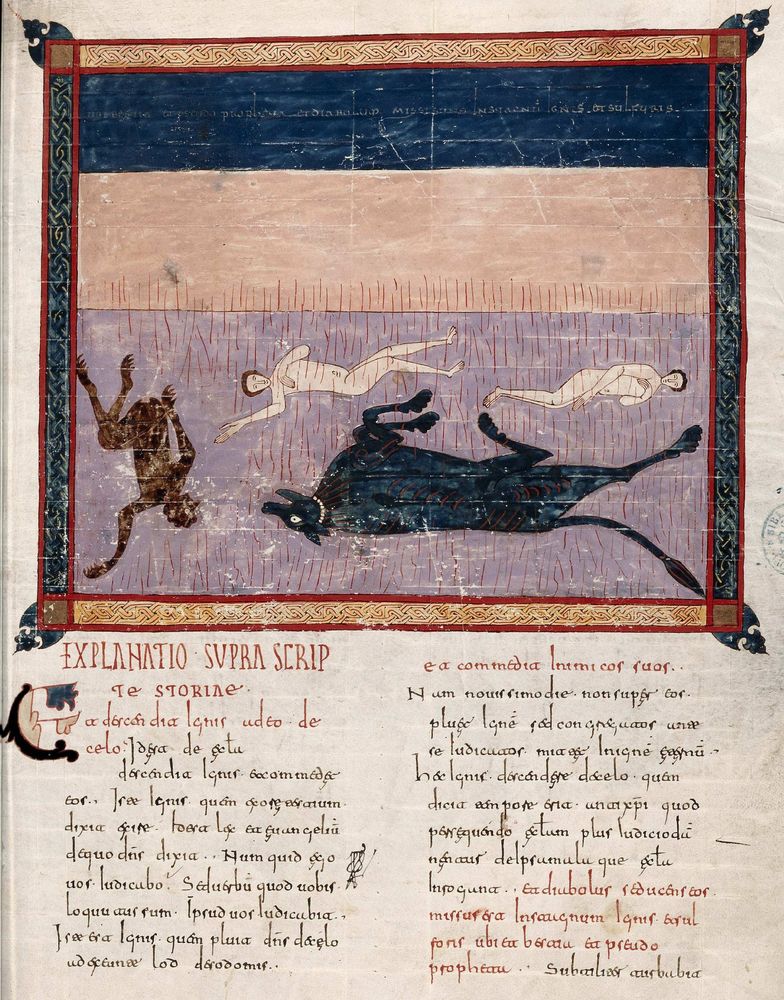 UBI BESTIA ET PSEUDO PROPHETA ET DIABOLUM MISSI SUNT IN STAGNŪ IGNIS ET SULFURIS
EXPLANATIO · SUPRA SCRIP
TE STORIAE ·
Et descendit ignis a deo · de
celo · Id est de ecl̄a
descendit ignis · et commedet
eos · Iste ignis · quem ex ore testium ·
dixit exire · hoc est lex et euangeliū
de quo dn̄s dixit ·. Numquid ego
uos iudicabo? Sed uerbū quod uobis
loquutus sum · Ipsud uos iudicabit ·.
Iste est ignis · quem pluit dn̄s de celo
lod de sodomis ·.
et commedit inimicos suos ·.
Nam nouissimo die · non super eos ·
pluet ignē sed congregatos ante
se iudicatos mittet in ignē eternū ·
hic ignis · descendet de celo · quem
dicit tempore antix̄p̄i quod
persequendo ecl̄am plus iudicio
que ecl̄a
Et diabolus seducens eos ·
missus est in stagnum ignis et sul
foris ubi et bestia et pseudo
propheta ·. Subtiliter